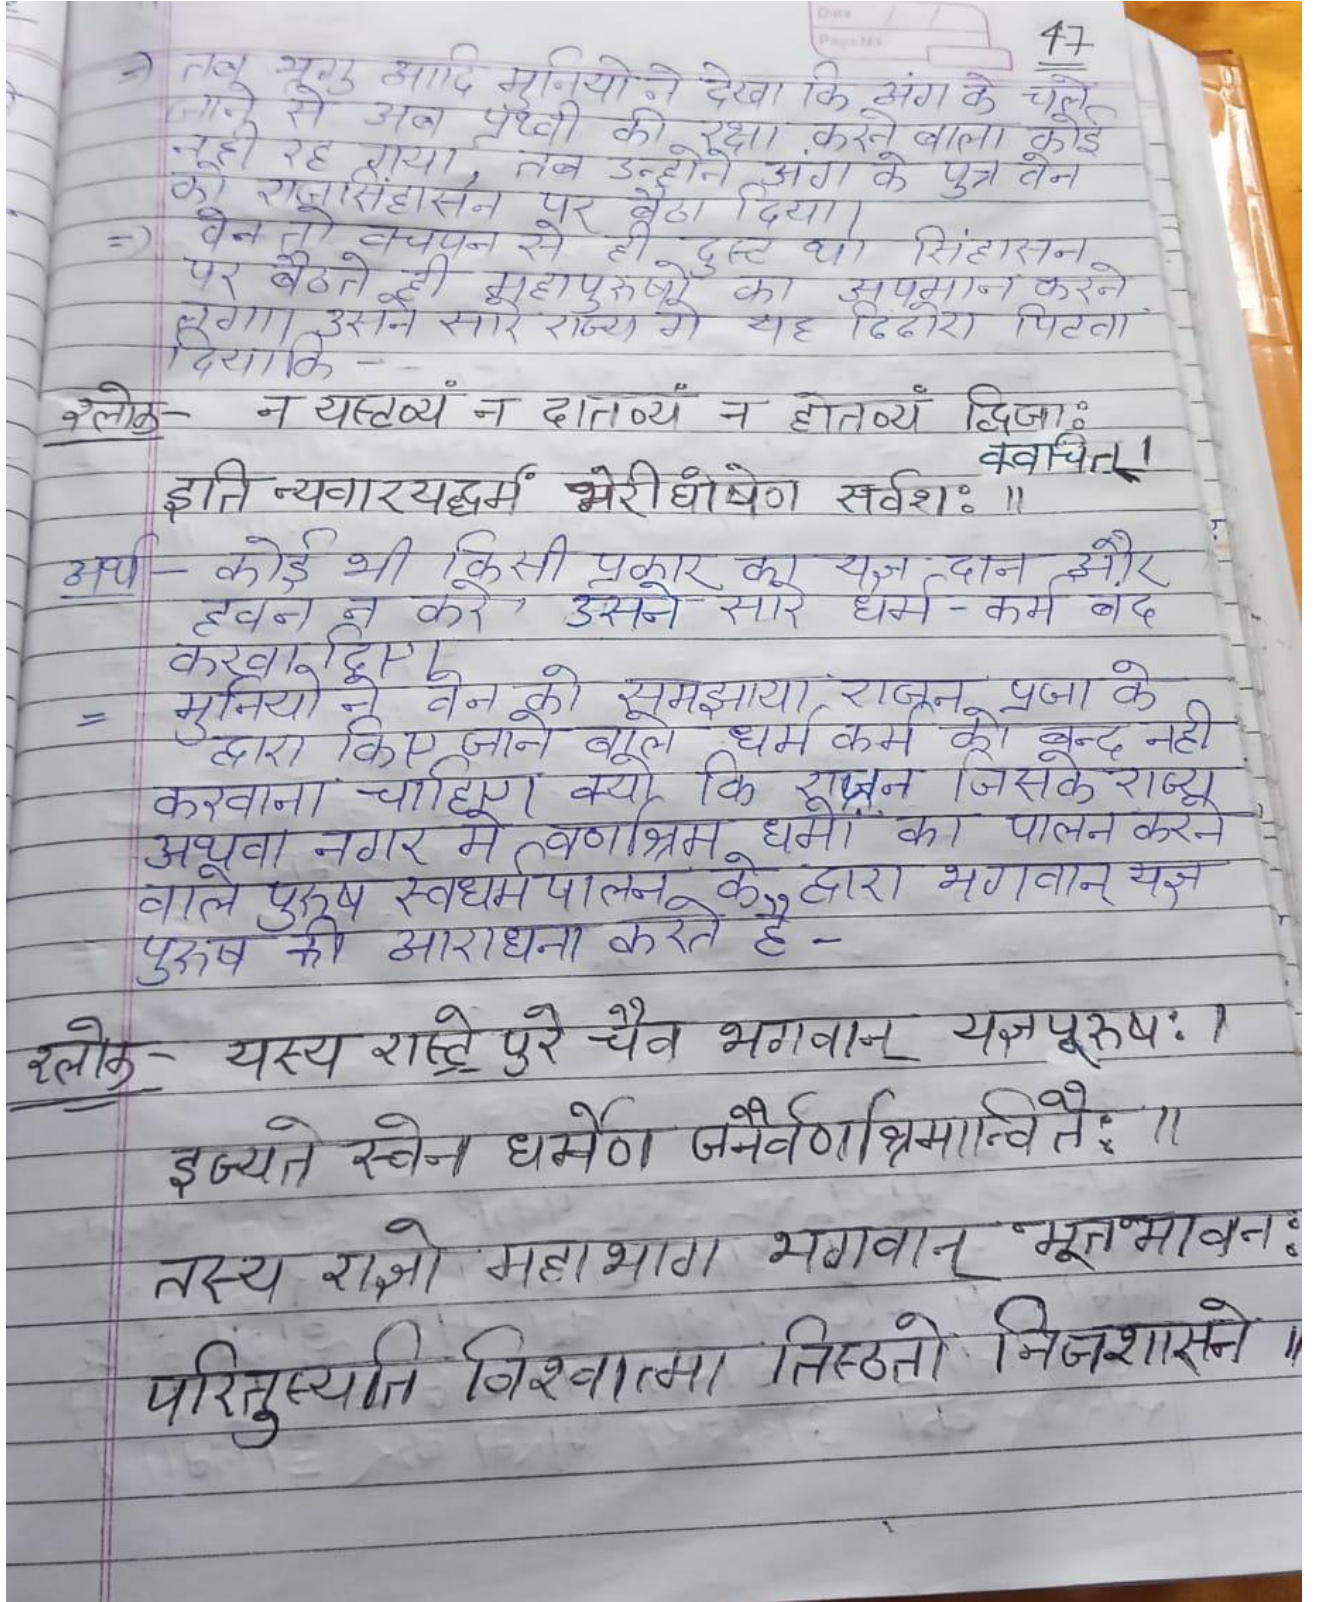 Date / /
Page No
47
=> तब भृगु आदि मुनियो ने देखा कि अंग के चले
जाने से अब पृथ्वी की रक्षा करने बाला कोई
नही रह गया, तब उन्होने अंग के पुत्र वेन
को राजसिंहासन पर बैठा दिया।
=> वेन तो बचपन से ही दुस्ट था सिंहासन
पर बैठते ही महापुरुषो का अपमान करने
लगा। उसने सारे राज्य मे यह ढिंढोरा पिटवा
दिया कि -
श्लोक - न यस्टव्यं न दातव्यं न होतव्यं द्विजाः
क्वचित्।
इति न्यवारयद्धर्मं भेरीघोषेण सर्वशः॥
अर्थ - कोई भी किसी प्रकार का यज्ञ दान और
हवन न करे, उसने सारे धर्म - कर्म बंद
करवा दिए।
= मुनियो ने वेन को समझाया राजन प्रजा के
द्वारा किए जाने बाले धर्म कर्म को बन्द नही
करवाना चाहिए। क्यो कि राजन जिसके राज्य
अथवा नगर मे वर्णाश्रम धर्मो का पालन करने
वाले पुरुष स्वधर्म पालन के द्वारा भगवान् यज्ञ
पुरुष की आराधना करते है -
श्लोक - यस्य रास्ट्रे पुरे चैव भगवान् यज्ञपूरुषः।
इज्यते स्वेन धर्मेण जनैर्वर्णाश्रमान्वितैः॥
तस्य राज्ञो महाभाग भगवान् भूतभावनः
परितुस्यति विश्वात्मा तिस्ठतो निजशासने॥